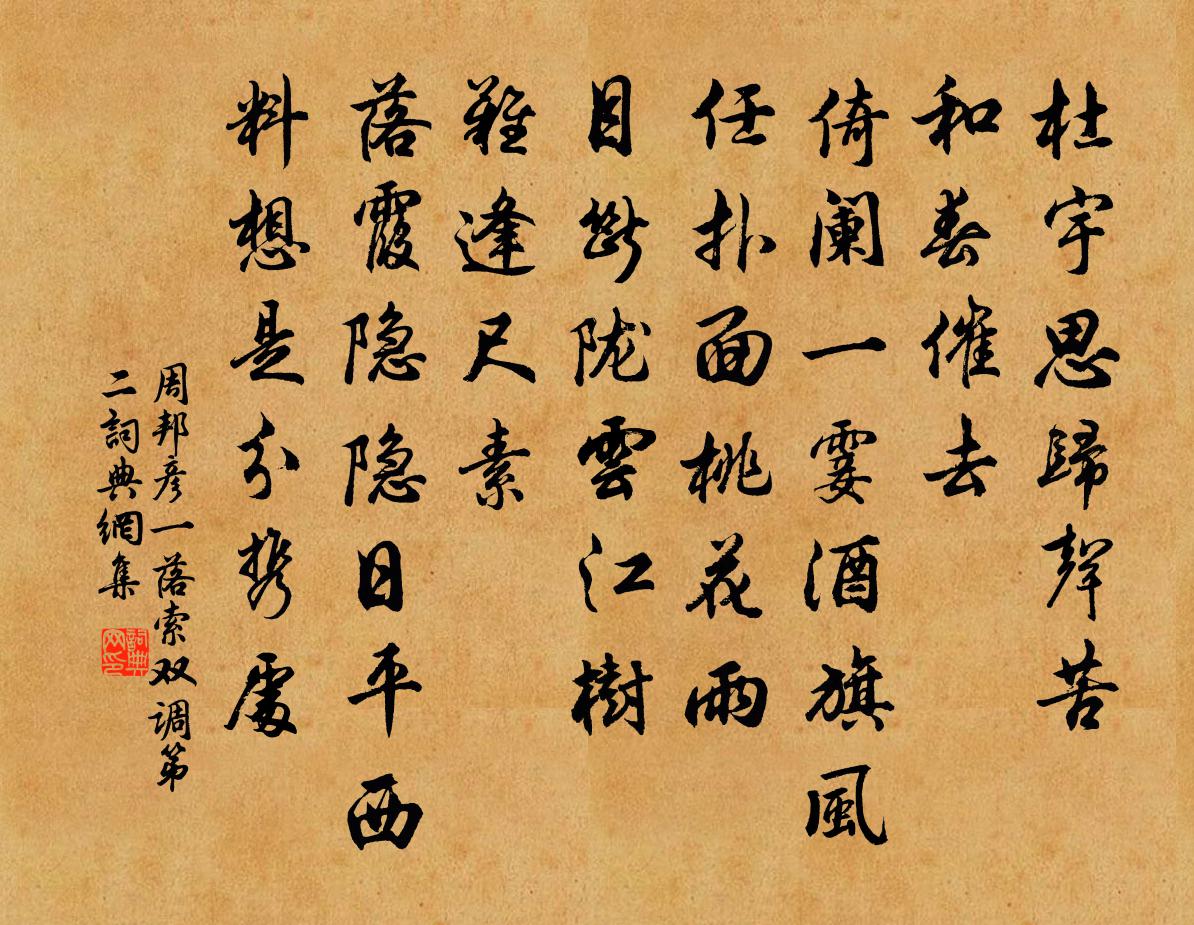 杜宇思歸聲苦
和春催去
倚阑一霎酒旗風
任扑面桃花雨
目断陇雲江樹
難逢尺素
落霞隐隐日平西
料想是分携處
周邦彦一落索双调第
二詞典網集
詞典网印